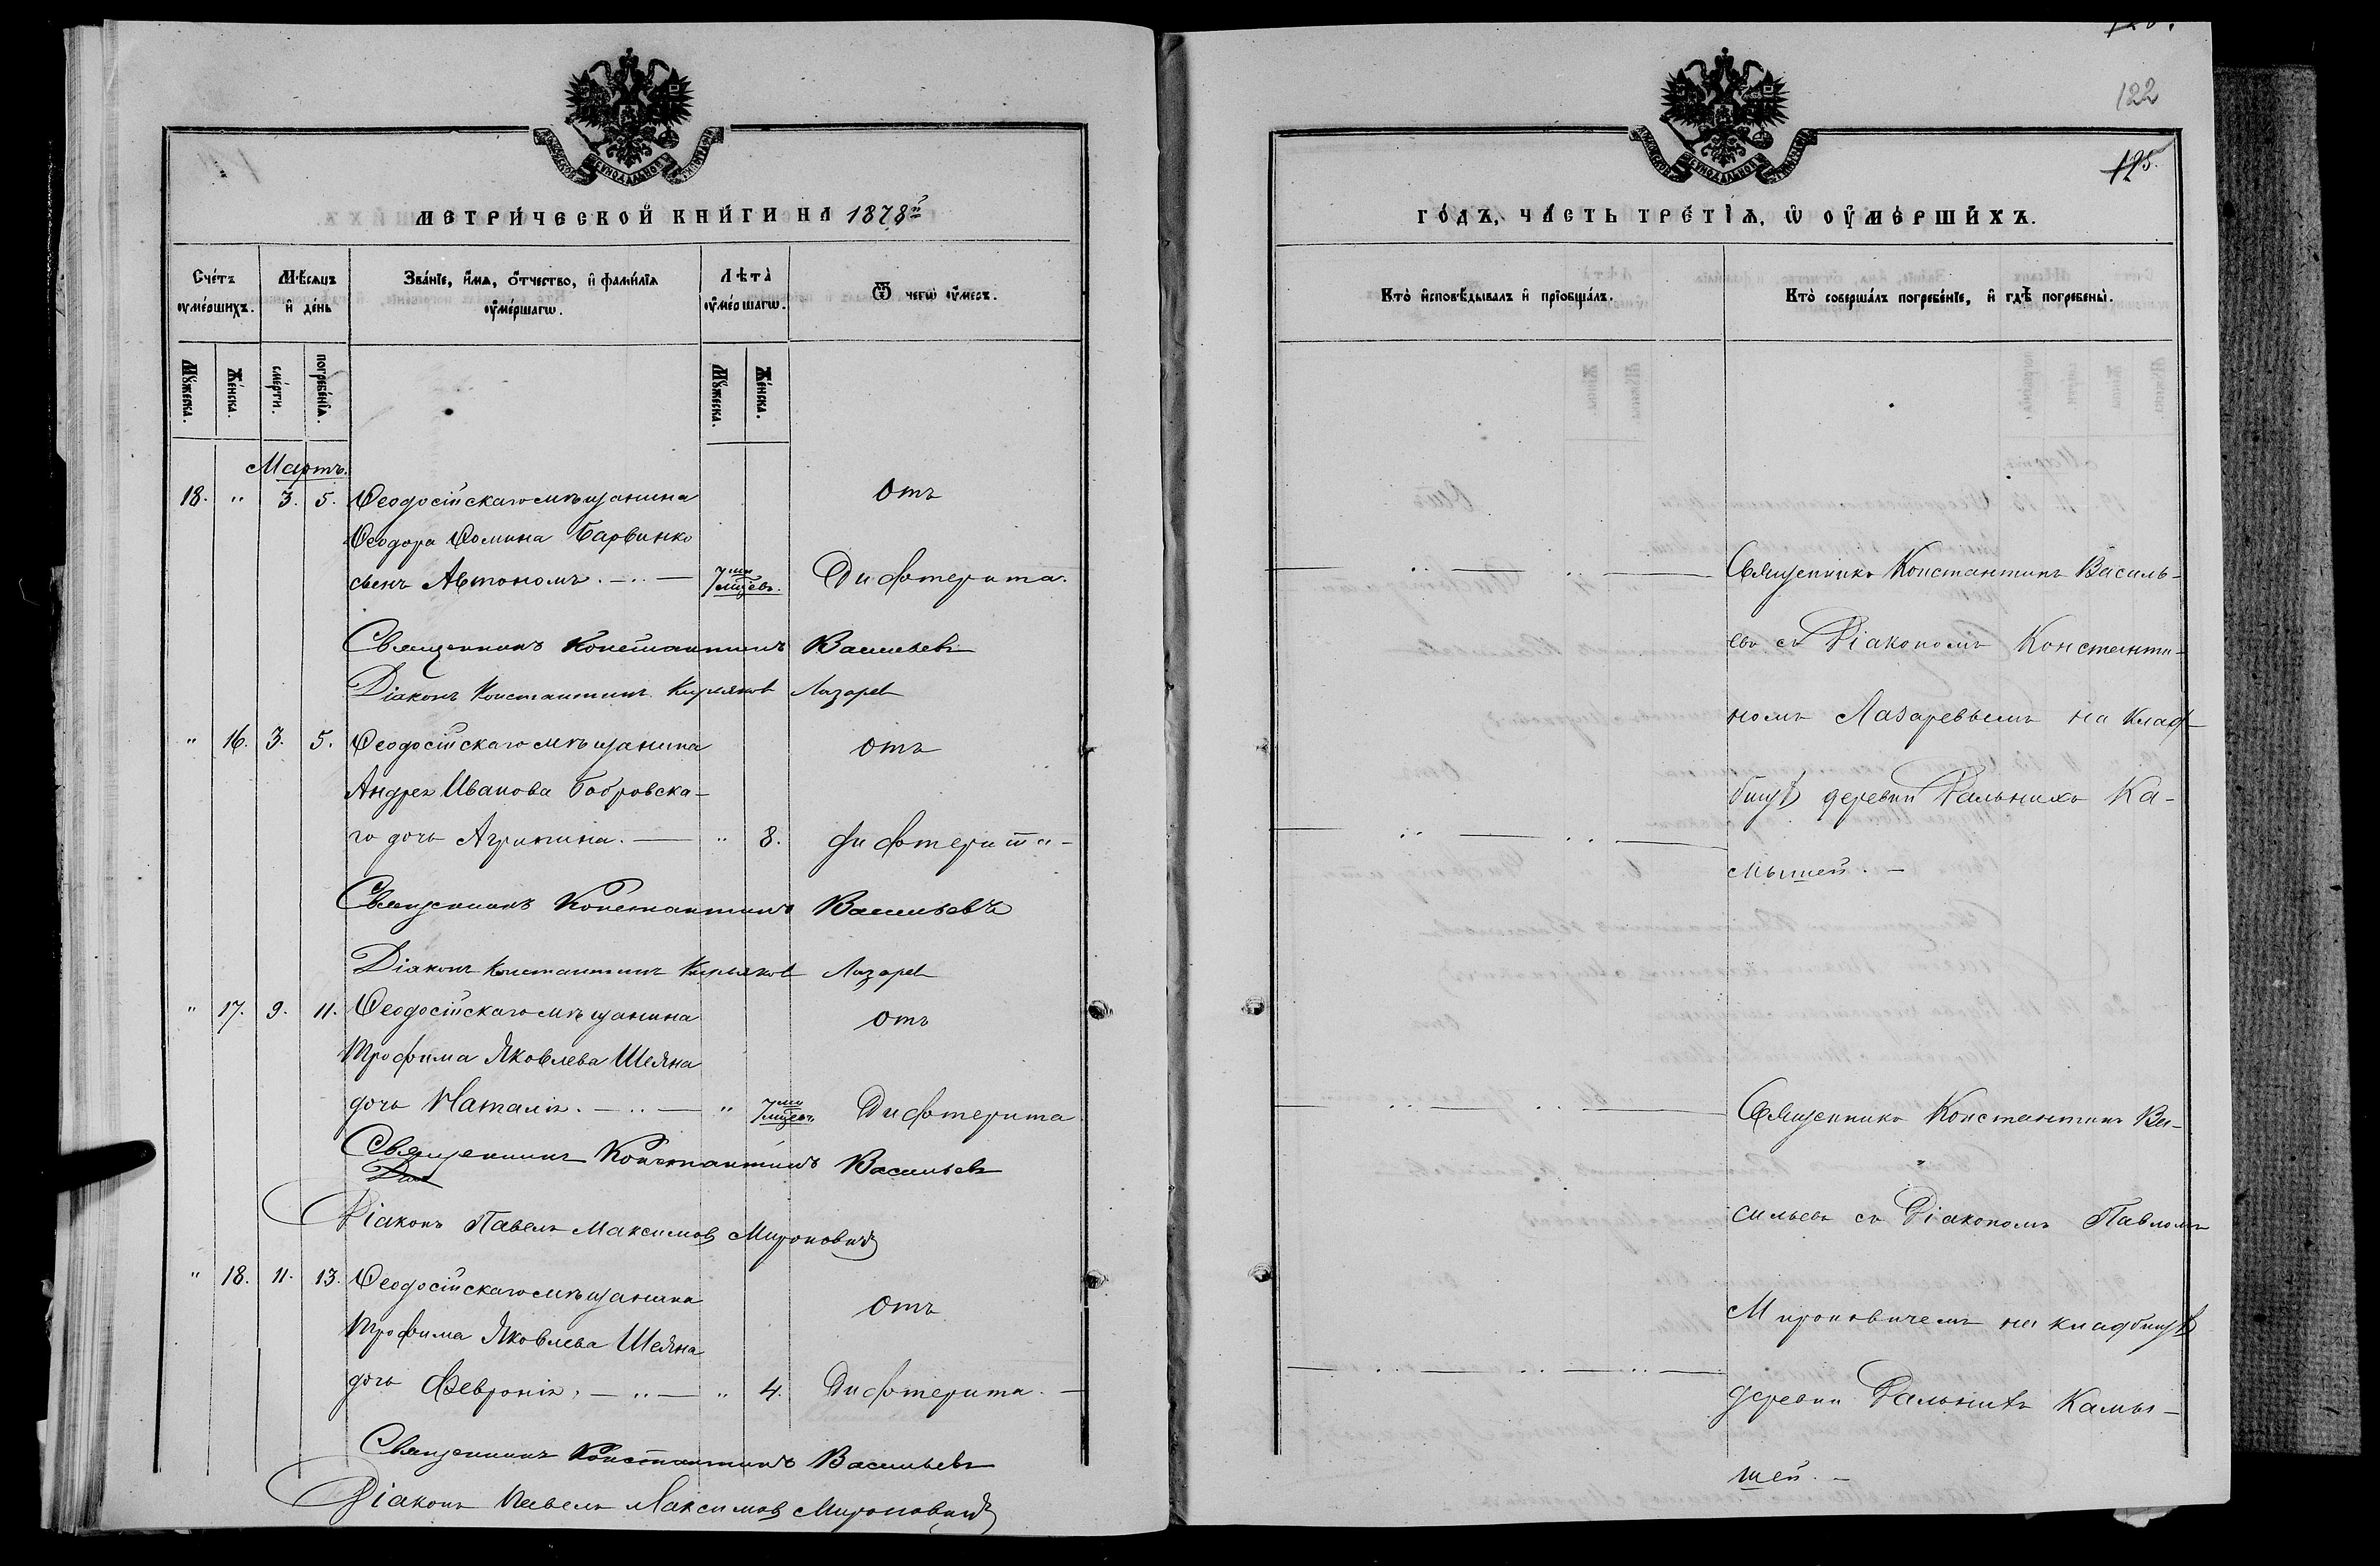 МЕТРИ́ЧЕСКОЙ КНИ́ГИ НА 1878й
Сче́тъ ᲂу҆ме́ршихъ.
Мѣ́сѧцъ и҆ де́нь
Зва́нїе, и҆́мѧ, ѻ҆́тчество, и҆ фами́лїѧ ᲂу҆ме́ршагѡ.
Лѣта̀ ᲂу҆ме́ршагѡ.
Ѿ чегѡ̀ ᲂу҆́меръ.
Мꙋ́жеска.
Же́нска.
сме́рти.
погребе́нїѧ.
Мꙋ́жеска.
Же́нска.
Мартъ.
18. " 3. 5. Ѳеодосійскаго мѣщанина Отъ
Ѳеодора Ѳомина Барвинко
сынъ Автономъ. — .. — 7ми мцевъ. Дифтерита.
Священникъ Константинъ Васильевъ
Діаконъ Константинъ Кирьяковъ Лазаревъ
" 16. 3. 5. Ѳеодосійскаго мѣщанина отъ
Андрея Иванова Бобровска-
го дочь Агрипина. — " 8. дифтерита -
Священникъ Константинъ Васильевъ
Діаконъ Константинъ Кирьяковъ Лазаревъ
" 17. 9. 11. Ѳеодосійскаго мѣщанина отъ
Трофима Яковлева Шеяна
дочь Наталія. — .. — " 7ми мцевъ Дифтерита
Священникъ Константинъ Васильевъ
Діаконъ Павелъ Максимовъ Мироновичъ
" 18. 11. 13. Ѳеодосійскаго мѣщанина отъ
Трофима Яковлева Шеяна
дочь Февронія. — .. — " 4. Дифтерита. —
Священникъ Константинъ Васильевъ
Діаконъ Павелъ Максимовъ Мироновичъ
122
125.
ГО́ДЪ, ЧА́СТЬ ТРЕ́ТЇѦ, Ѡ҆ ОУ҆МЕ́РШИХЪ.
Кто̀ и҆сповѣ́дывалъ и҆ прїобща́лъ.
Кто̀ соверша́лъ погребе́нїе, и҆ гдѣ̀ погребены̀.
Священникъ Константинъ Василь-
евъ съ Діакономъ Константи-
номъ Лазаревымъ на клад-
бищѣ деревни Дальнихъ Ка-
мышей. —
Священникъ Константинъ Ва-
сильевъ съ Діакономъ Павломъ
Мироновичемъ на кладбищѣ
деревни Дальнихъ Камы-
шей. —